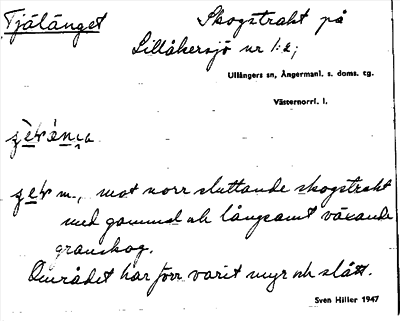 Tjäländet Skogstrakt på
Lillåkersjö nr 1:2;
Ullångers sn, Ångermanl. s. doms. tg.
Västernorrl. l.
m., mot norr sluttande skogstrakt
med gammal ok långsamt växande
granskog.
Området har förr varit myr ok slått.
Sven Hiller 1947